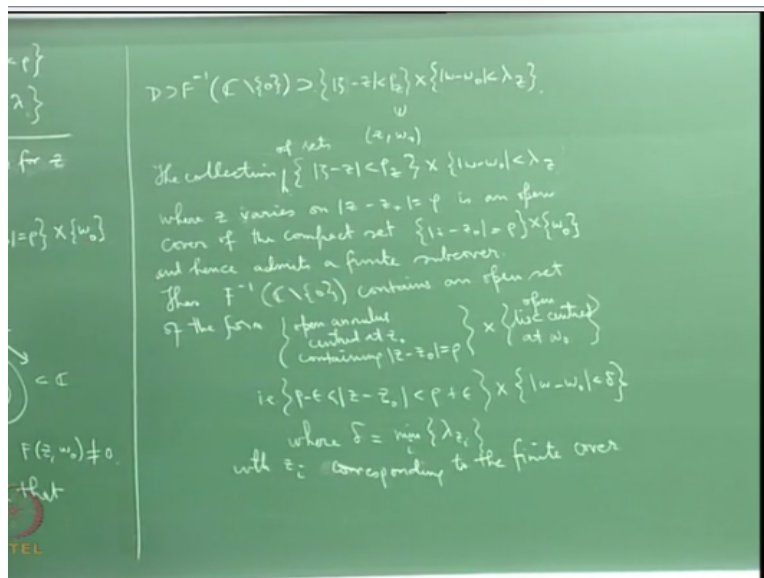 < ρ}
λ}
for z
|=ρ} × {w₀}
⊂ ℂ
F(z, w₀) ≠ 0
that
TEL
D ⊃ F⁻¹(ℂ∖{0}) ⊃ {|ζ-z|<ρ_z} × {|w-w₀|<λ_z}.
(z, w₀)
of sets
The collection {|ζ-z|<ρ_z} × {|w-w₀|<λ_z
where z varies on |z-z₀|=ρ is an open
cover of the compact set {|z-z₀|=ρ}×{w₀}
and hence admits a finite subcover.
Then F⁻¹(ℂ∖{0}) contains an open set
of the form {open annulus centred at z₀ containing |z-z₀|=ρ} × {open disc centred at w₀}
ie {ρ-ϵ<|z-z₀|<ρ+ϵ} × {|w-w₀|<δ}
where δ = min_i {λ_{z_i}}
with z_i corresponding to the finite cover